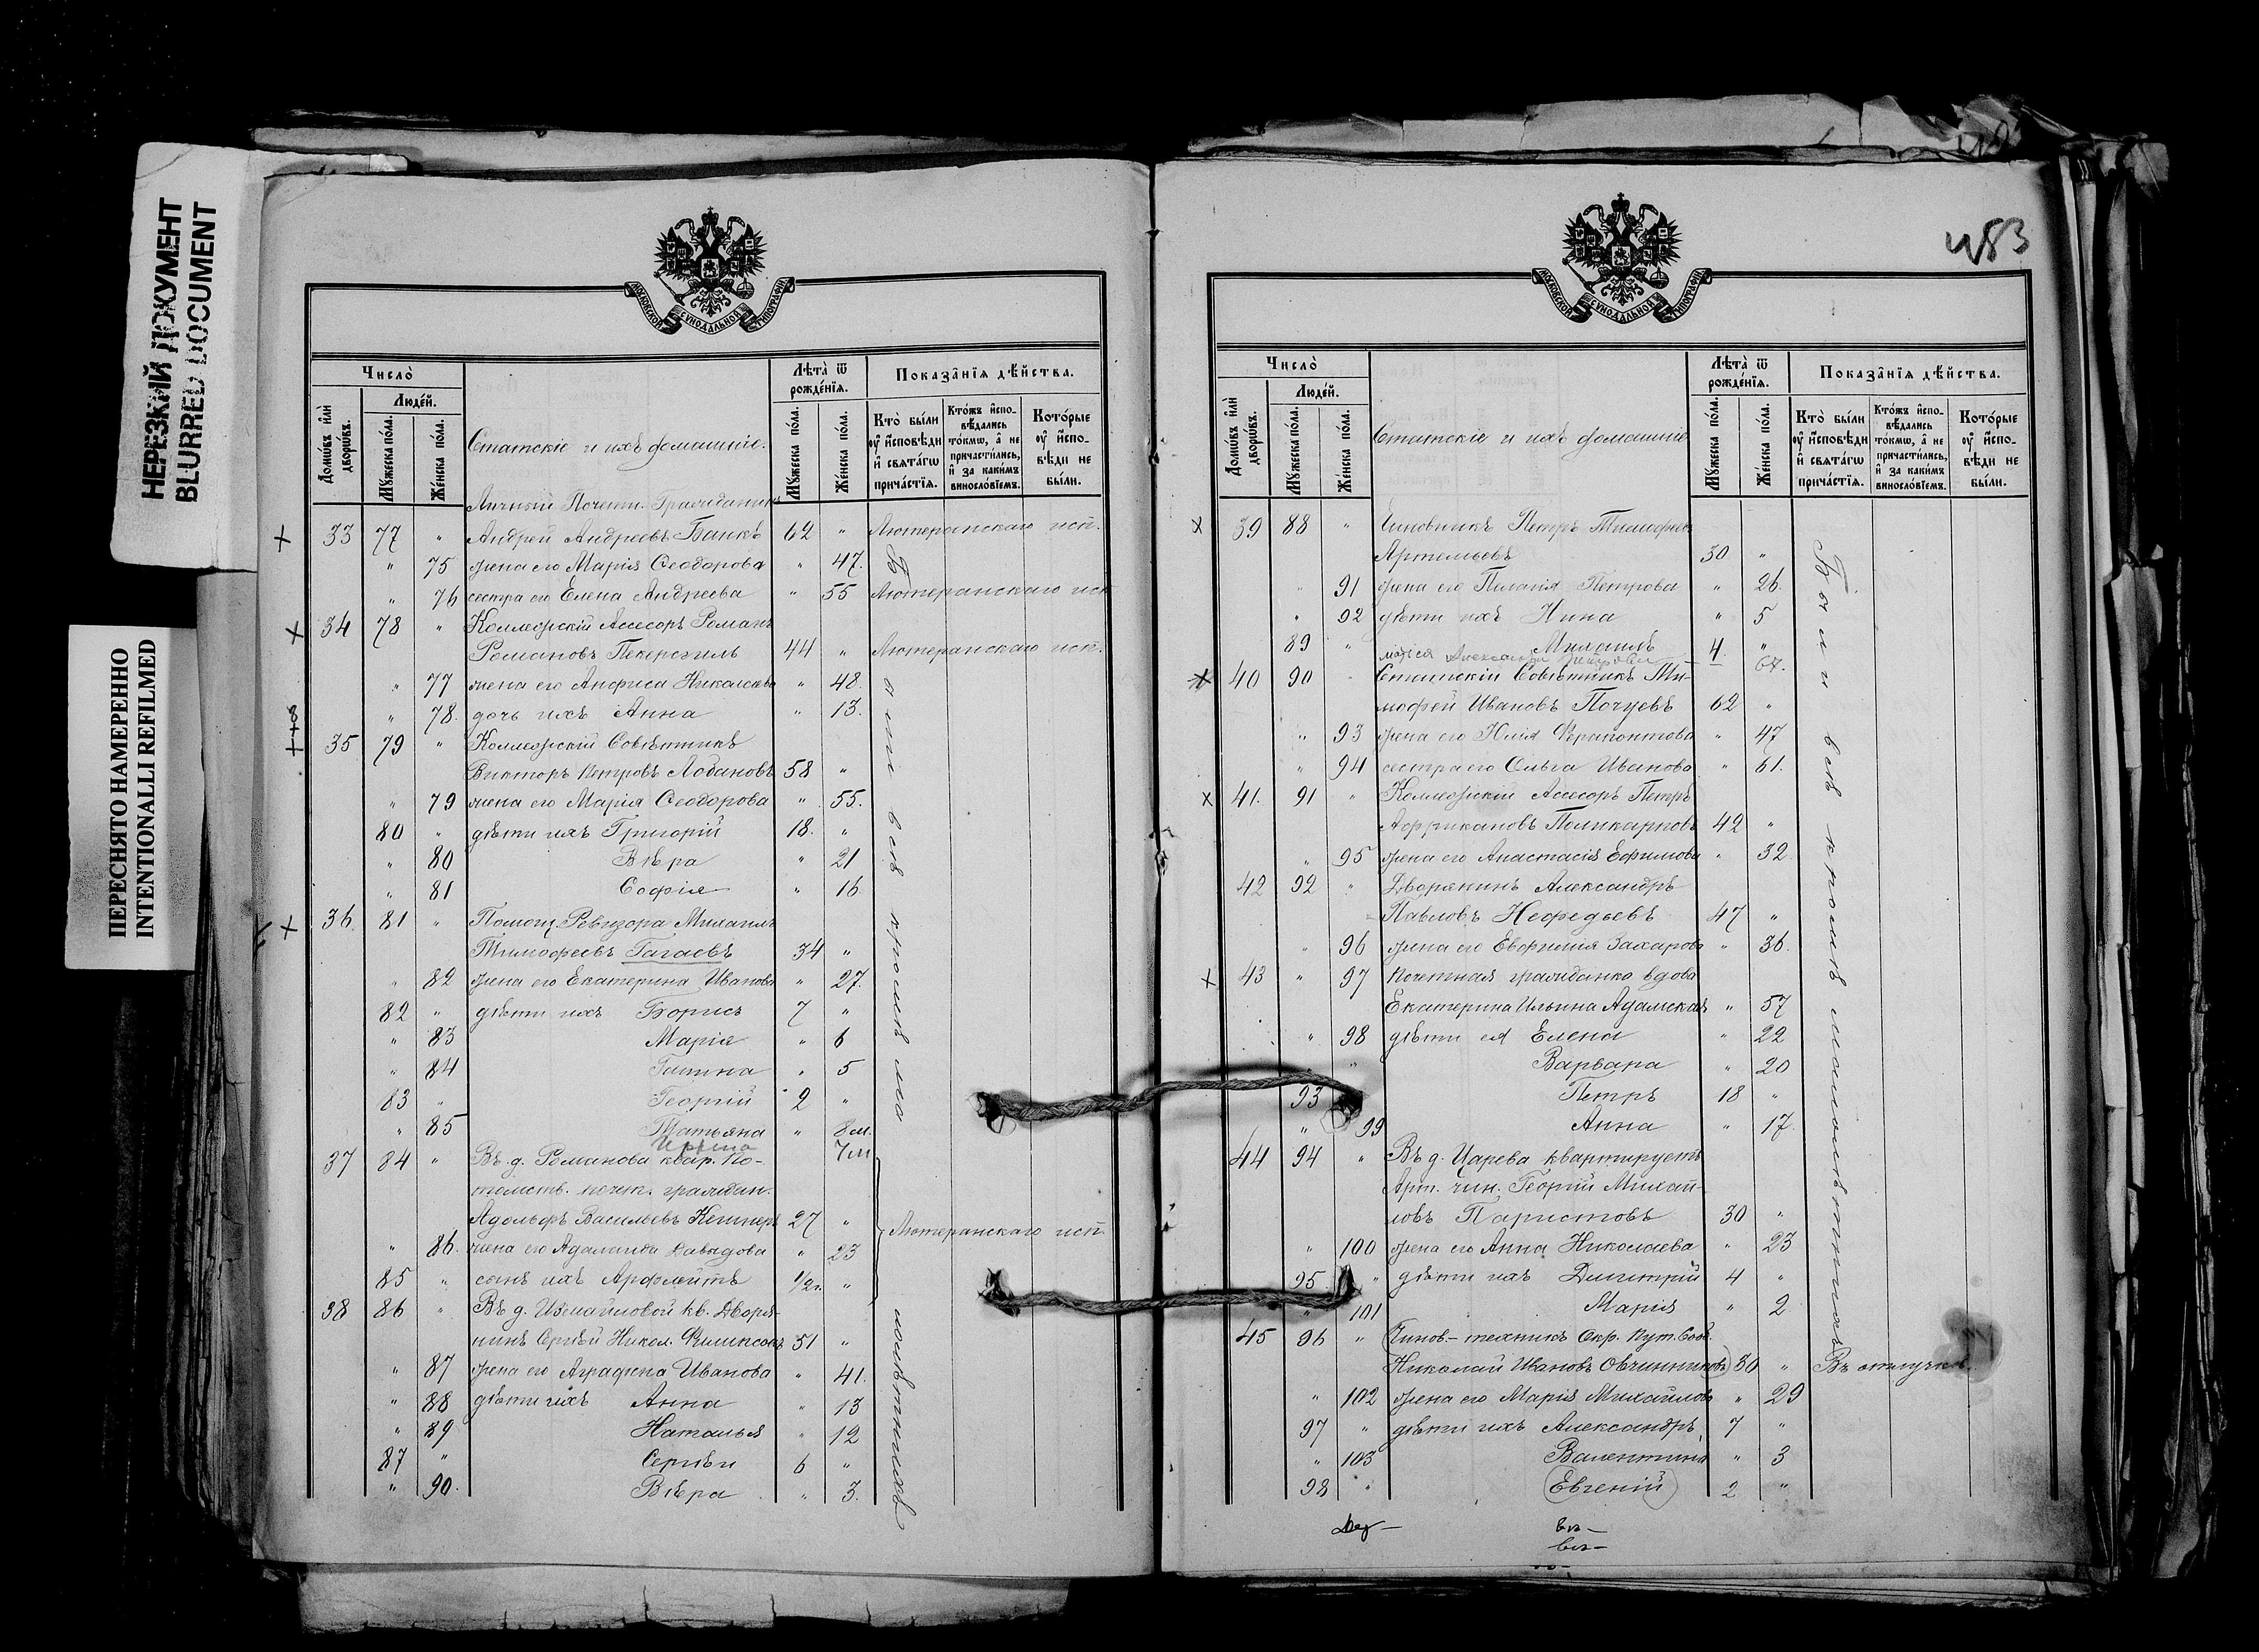 НЕРЕЗКИЙ ДОКУМЕНТ
BLURRED DOCUMENT
ПЕРЕСНЯТО НАМЕРЕННО
INTENTIONALLI REFILMED
МОСКОВСКОЙ СУНОДАЛЬНОЙ ТИПОГРАФІИ
Число̀
Домѡ́въ и҆лѝ дворѡ́въ.
Люде́й.
Мꙋ́жеска по́ла.
Же́нска по́ла.
Статскіе и ихъ домашніе.
Лѣта̀ ѿ рожде́нїѧ.
Мꙋ́жеска по́ла.
Же́нска по́ла.
Показа̂нїѧ дѣ́йства.
Кто̀ бы́ли ᲂу҆ и҆сповѣди и҆ свѧта́гѡ прича́стїѧ.
Кто́жъ и҆спо-вѣдались то́кмѡ, а҆ не причасти́лись, и҆ за каки́мъ винословїемъ.
Кото́рые ᲂу҆ и҆спо-вѣди не бы́ли.
Личный Почетн. Гражданинъ
33 77 " Андрей Андреевъ Банкъ 62 " Лютеранскаго исп.
" 75 жена его Марія Ѳеодорова " 47.
" 76 сестра его Елена Андреева " 55 Лютеранскаго исп
34 78 " Коллежскій Ассесоръ Романъ
Романовъ 44 " Лютеранскаго исп.
" 77 жена его Анфиса Николаева " 48.
" 78. дочь ихъ Анна " 13.
35 79 " Коллежскій Совѣтникъ
Викторъ Петровъ Лобановъ 58 "
" 79 жена его Марія Ѳеодорова " 55.
80 " дѣти ихъ Григорій 18. "
" 80 Вѣра " 21
" 81 Софія " 16
36. 81 " Помощ. Ревизора Михаилъ
Тимофеевъ Гагаевъ 34 "
" 82 жена его Екатерина Иванова " 27.
82 " дѣти ихъ Борисъ 7 "
" 83 Марія " 6
" 84 Галина " 5
83 " Георгій 2 "
" 85 Татьяна " 8 м.
Ирина 7 м
37 84 " Въ д. Романова квар. По-
томств. почет. граждан.
Адольфъ Васильевъ 27 "
Лютеранскаго исп.
" 86. жена его Аделаида Давыдова " 23
85 " сынъ ихъ 1/2 г. "
38 86 " Въ д. Измайловой кв. Дворя-
нинъ Сергѣй Никол. 51 "
" 87 жена его Аграфена Иванова " 41.
" 88 дѣти ихъ Анна " 13
" 89 Наталья " 12
87 " Сергѣй 6 "
" 90. Вѣра " 3.
Были всѣ кромѣ малолѣтнихъ
483
МОСКОВСКОЙ СУНОДАЛЬНОЙ ТИПОГРАФІИ
Число̀
Домѡ́въ и҆лѝ дворѡ́въ.
Люде́й.
Мꙋ́жеска по́ла.
Же́нска по́ла.
Статскіе и ихъ домашніе
Лѣта̀ ѿ рожде́нїѧ.
Мꙋ́жеска по́ла.
Же́нска по́ла.
Показа̂нїѧ дѣ́йства.
Кто̀ бы́ли ᲂу҆ и҆сповѣди и҆ свѧта́гѡ прича́стїѧ.
Кто́жъ и҆спо-вѣдались то́кмѡ, а҆ не причасти́лись, и҆ за каки́мъ винословїемъ.
Кото́рые ᲂу҆ и҆спо-вѣди не бы́ли.
39 88 " Чиновникъ Петръ Тимофеев
Артемьевъ 30 "
" 91 жена его Пелагія Петрова " 26.
" 92 дѣти ихъ Нина " 5
89 " Михаилъ 4. "
Александра 67.
40 90 " Статскій Совѣтникъ Ти-
мофей Ивановъ Почуевъ 62 "
" 93 жена его Юлія Ферапонтова " 47
" 94 сестра его Ольга Иванова " 61.
41. 91 " Коллежскій Ассесоръ Петръ
Аффрикановъ Поликарповъ 42 "
" 95 жена его Анастасія Ефимова " 32.
42 92 " Дворянинъ Александръ
Павловъ Нефедьевъ 47 "
" 96 жена его Евфимія Захарова " 36.
43 " 97 Почетная гражданка вдова
Екатерина Ильина Адамская " 57
" 98 дѣти ея Елена " 22
" Варвара " 20
93 Петръ 18 "
" 99 Анна " 17.
44 94 " Въ д. Царева квартируетъ
Арт. чин. Георгій Михай-
ловъ Паристовъ 30 "
" 100 жена его Анна Николаева " 23
95 " дѣти ихъ Димитрій 4 "
" 101 Марія " 2
45 96 " Чинов-техникъ Окр. Пут. Сооб.
Николай Ивановъ Овчинниковъ 30 " Въ отлучкѣ
" 102 жена его Марія Михайлова " 29
97 " дѣти ихъ Александръ 7 "
" 103 Валентина " 3
98 " Евгеній 2 "
Были всѣ кромѣ малолѣтнихъ